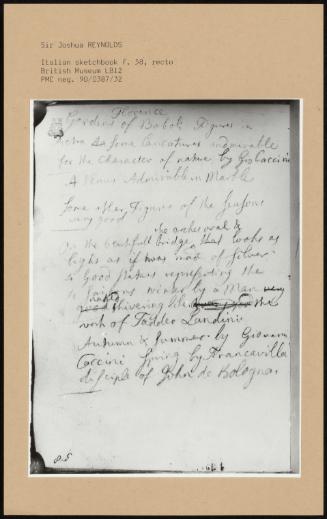 Sir Joshua REYNOLDS
Italian sketchbook f. 58, recto
British Museum LB12
PMC neg. 90/D387/32
Florence
Gardens of Boboli Figures in
Pietra & some Caricatures admirable
for the character of nature by
A Venus Admirable in Marble
Some other Figures of the Seasons
very good
the arches oval &
On the beautifull bridge that looks as
light as if it was made of Silver
4 Good Statues representing the
4 Saisons winter by a Man very
naked
good shivering the
work of Taddeo Landini
Autumn & Summer by Giovanni
Caccini Spring by Francavilla
disciple of John de Bologna